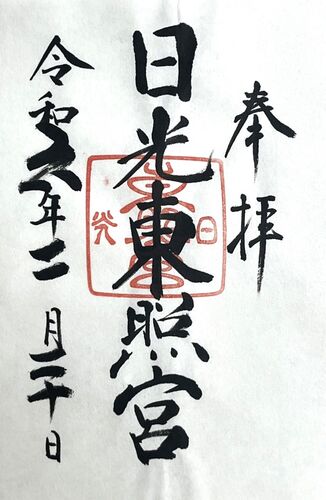 奉拝
日光東照宮
令和六年二月二十日
日光